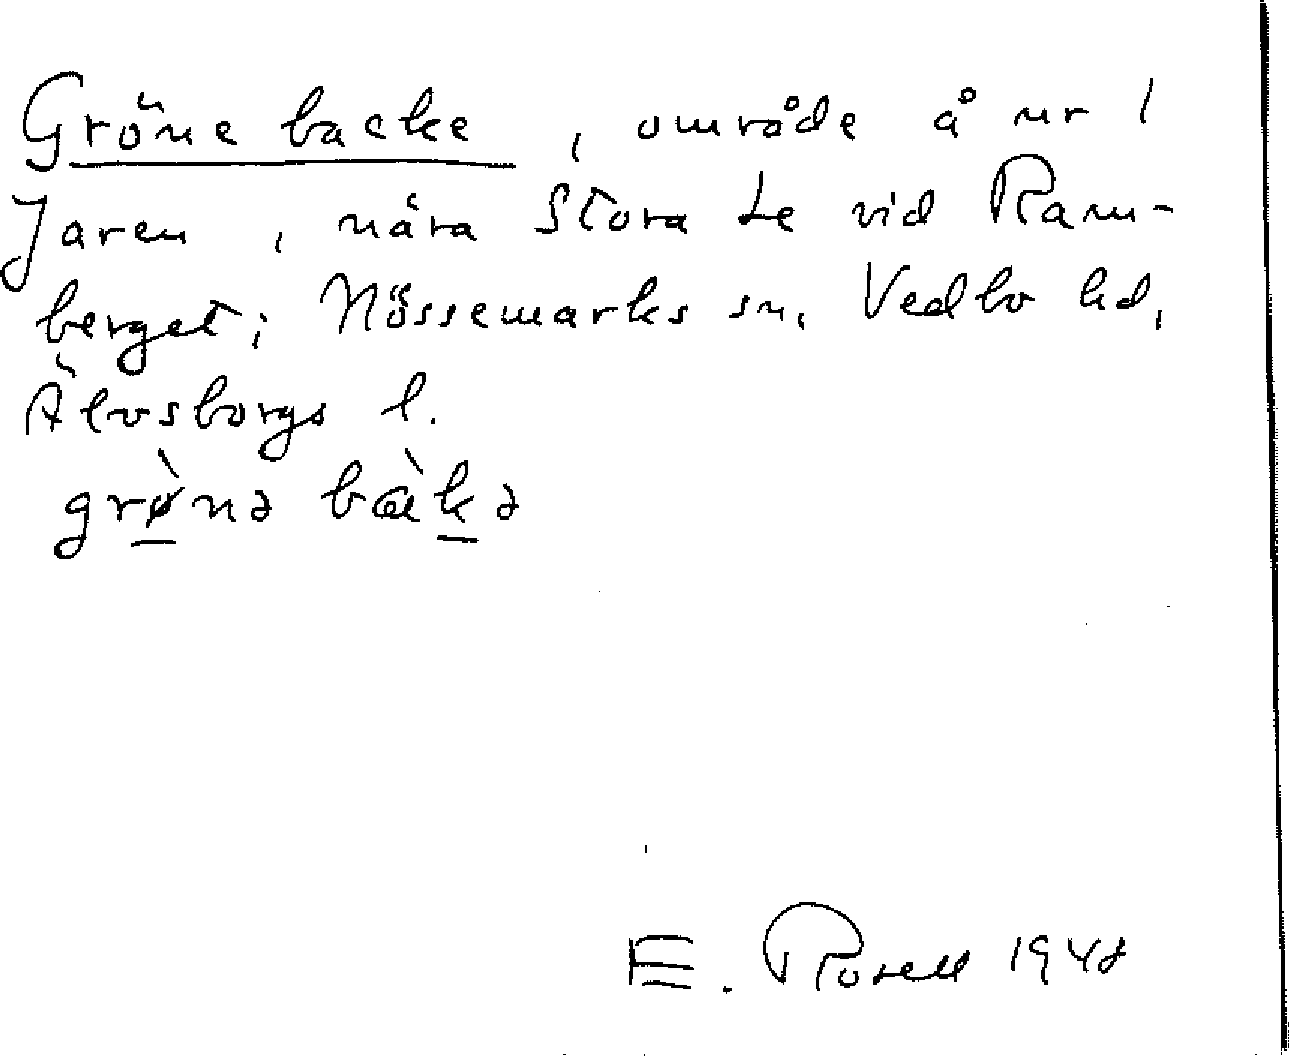 Gröne backe, område å nr 1
Jaren, nära Stora Le vid Ram-
berget; Nössemarks sn, Vedbo hd,
Älvsborgs l.
grø̀nə bàkə
E. Rosell 1948